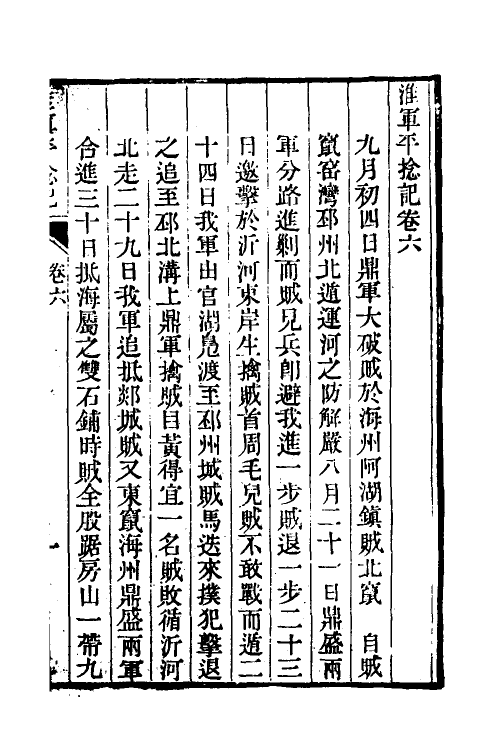 淮軍平捻記卷六
九月初四日鼎軍大破賊於海州阿湖鎮賊北竄　自賊
竄窑灣邳州北遁運河之防解嚴八月二十一日鼎盛兩
軍分路進剿而賊見兵卽避我進一步賊退一步二十三
日邀擊於沂河東岸生擒賊首周毛兒賊不敢戰而遁二
十四日我軍由官湖鳧渡至邳州城賊馬迭來撲犯擊退
之追至邳北溝上鼎軍擒賊目黃得宜一名賊敗循沂河
北走二十九日我軍追抵郯城賊又東竄海州鼎盛兩軍
合進三十日抵海屬之雙石鋪時賊全股踞房山一帶九
卷六
一